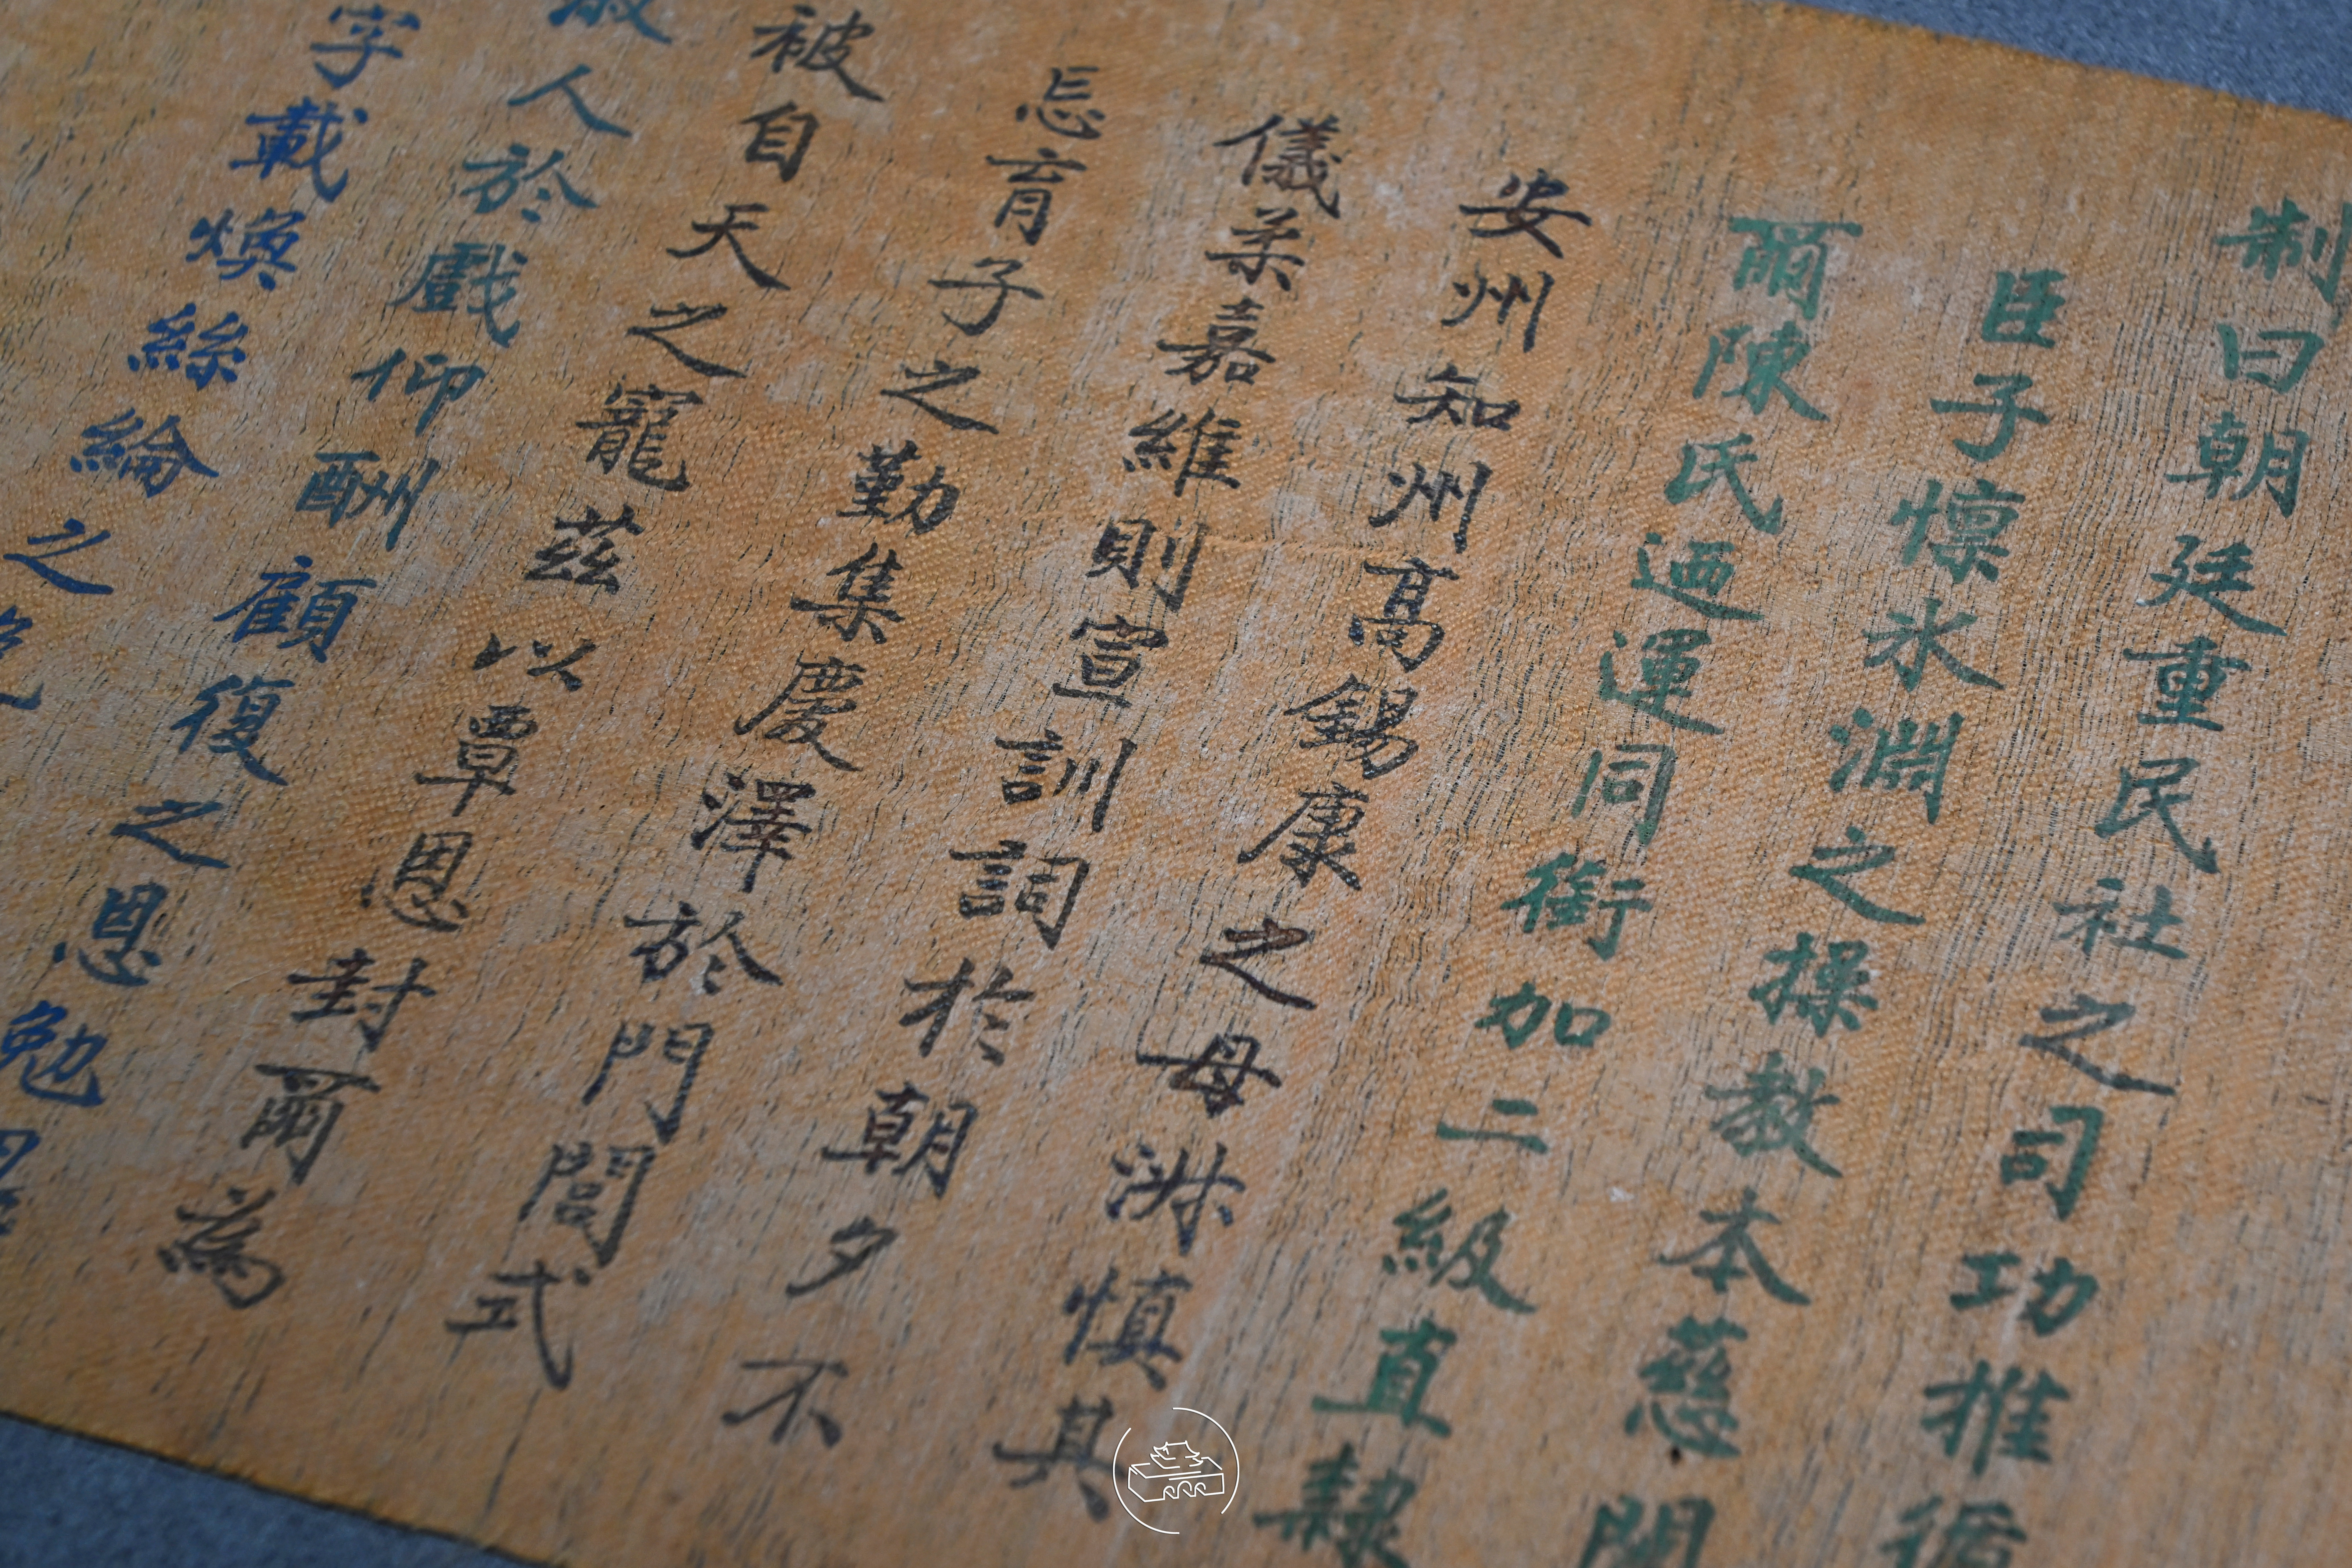 制曰朝廷重民社之司功推循
臣子懍氷淵之操教本慈
爾陳氏迺運同銜加二級直隸
安州知州高錫康之母淑慎其
儀柔嘉維則宣訓詞於朝夕不
忘育子之勤集慶澤於門閭式
被自天之寵茲以覃恩封爾為
淑人於戲仰酬顧復之恩勉
字載煥絲綸之